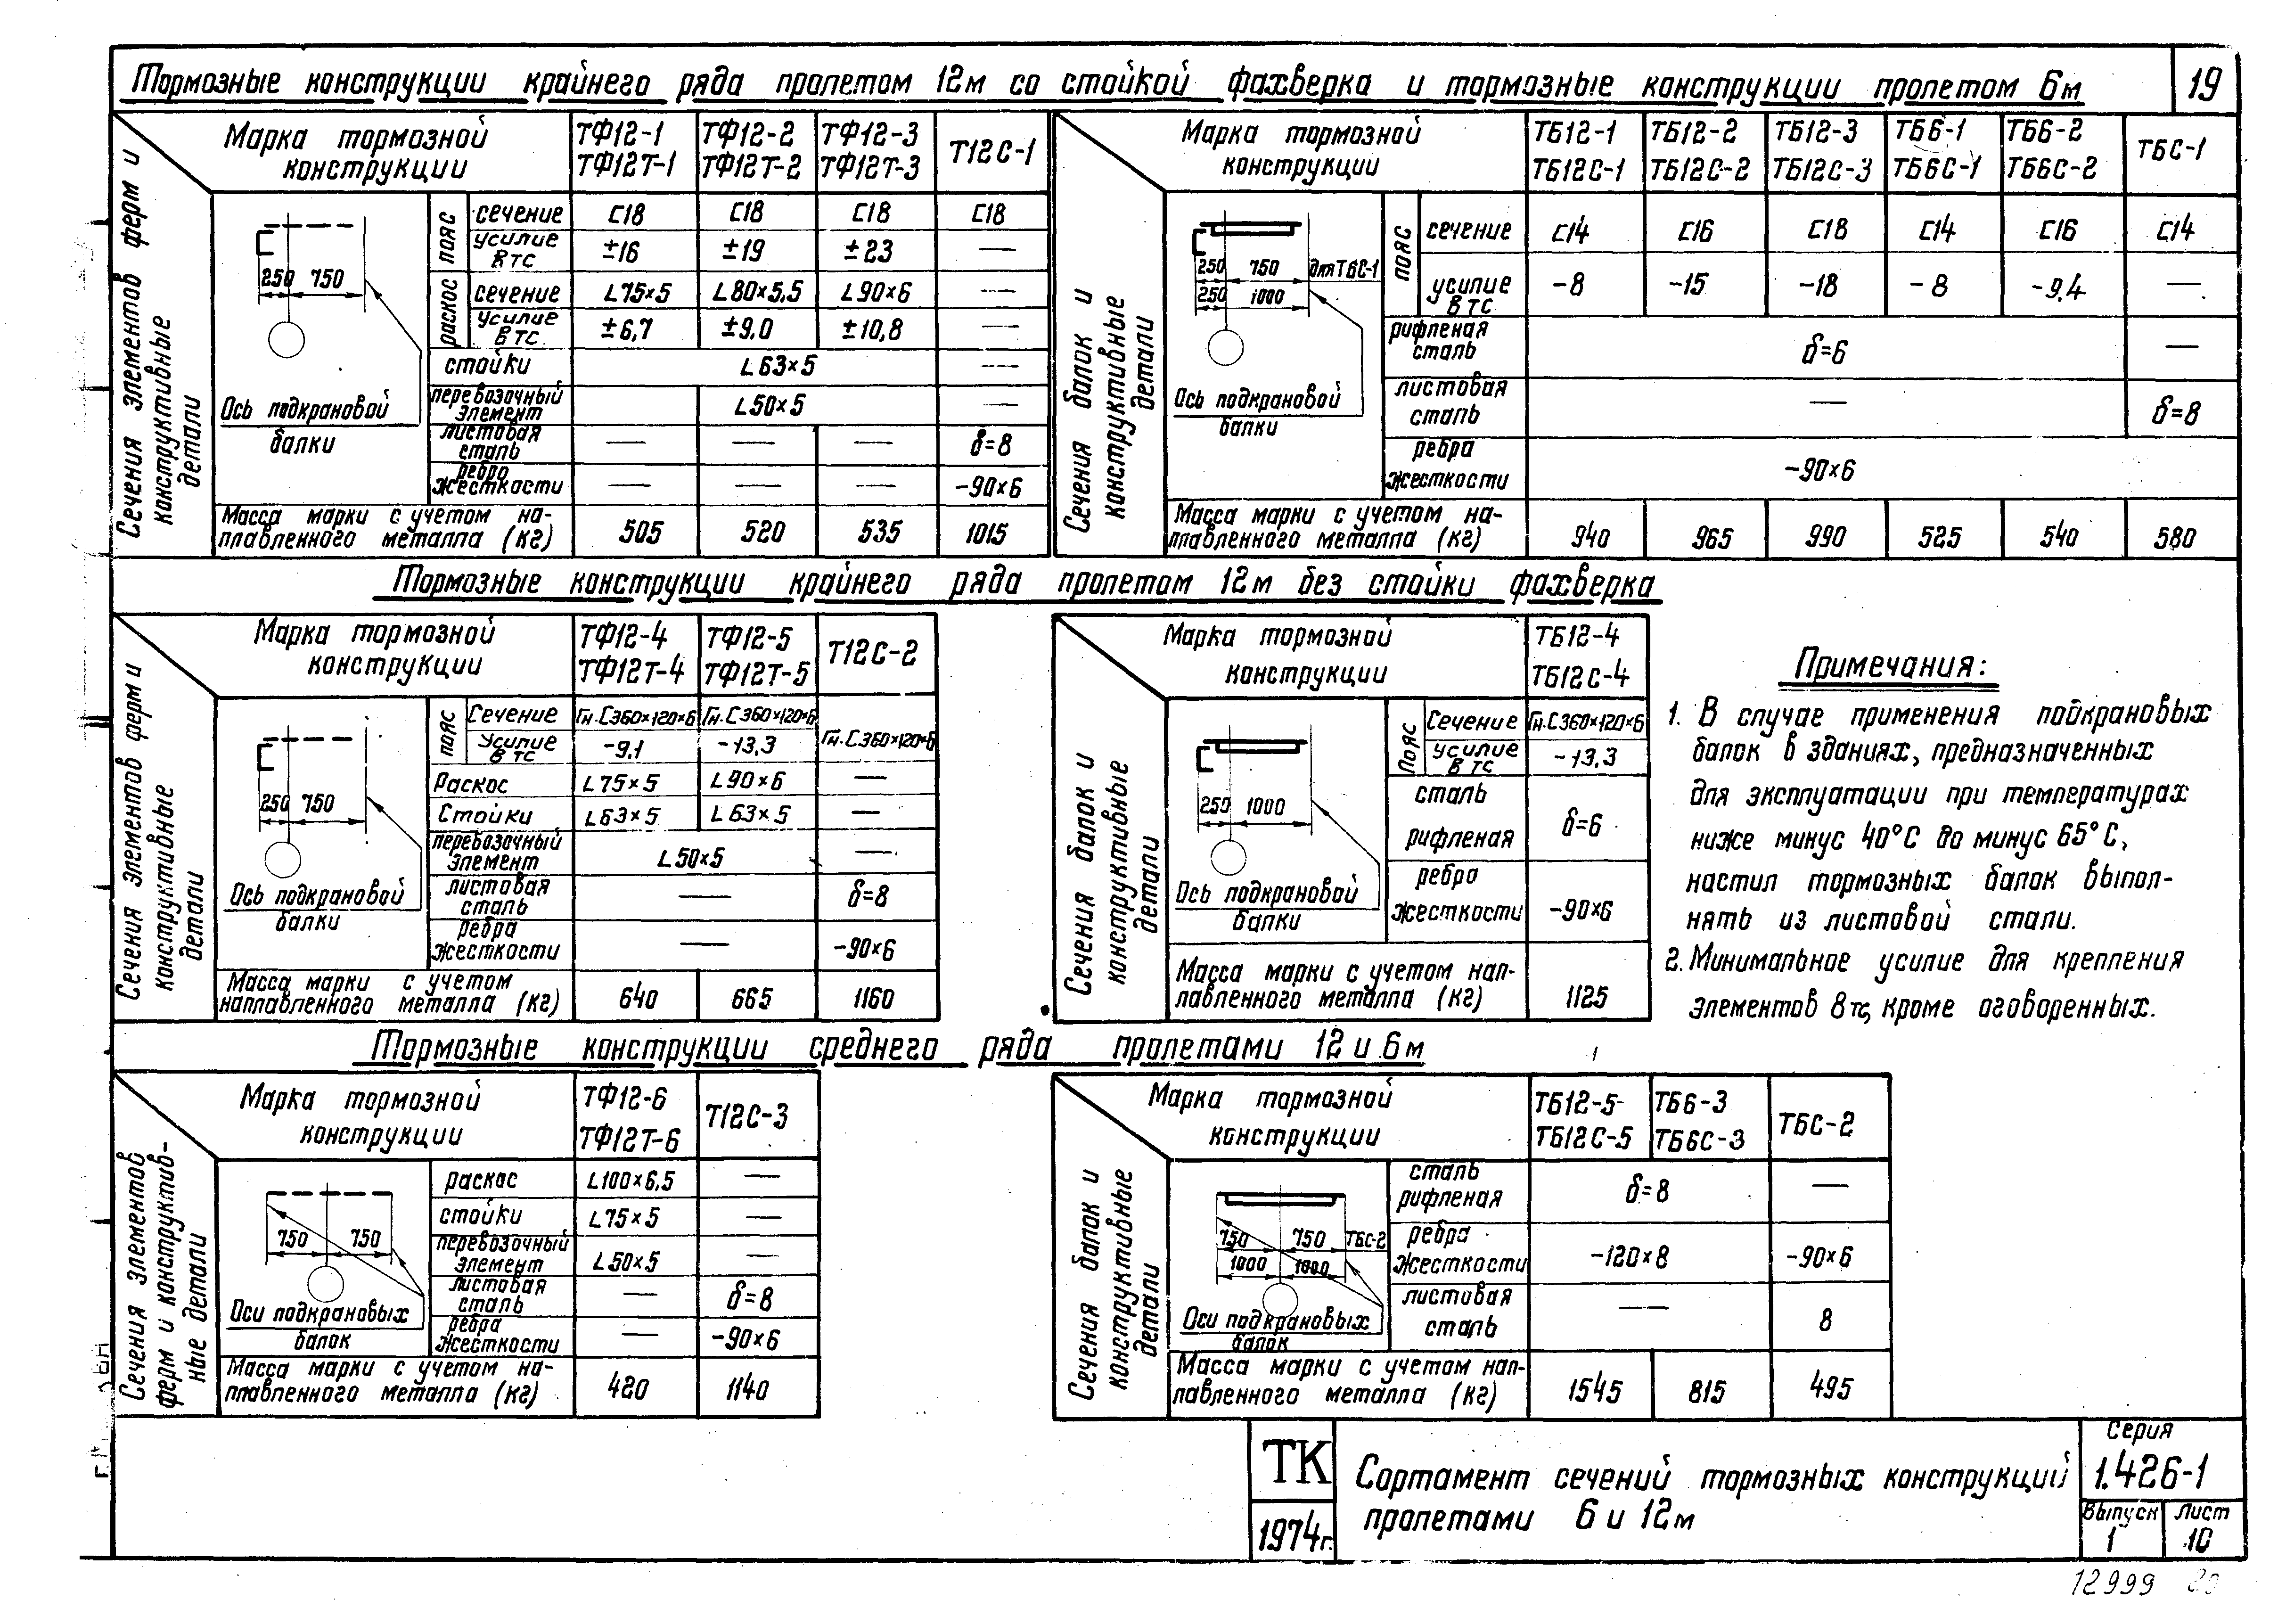 Тормозные конструкции крайнего ряда пролетом 12м со стойкой фахверка и тормозные конструкции пролетом 6м
19
Сечения элементов ферм и конструктивные детали
Марка тормозной конструкции
ТФ12-1 ТФ12-2 ТФ12-3 Т12С-1
ТФ12Т-1 ТФ12Т-2 ТФ12Т-3
250 750
Ось подкрановой
балки
пояс сечение С18 С18 С18 С18
усилие в тс ±16 ±19 ±23 —
раскос сечение L75×5 L80×5,5 L90×6 —
усилие в тс ±6,7 ±9,0 ±10,8 —
стойки L63×5 —
перевозочный элемент L50×5 —
листовая сталь — — — δ=8
ребра жесткости — — — -90×6
Масса марки с учетом на-
плавленного металла (кг) 505 520 535 1015
Сечения балок и конструктивные детали
Марка тормозной конструкций
ТБ12-1 ТБ12-2 ТБ12-3 ТБ6-1 ТБ6-2 ТБС-1
ТБ12С-1 ТБ12С-2 ТБ12С-3 ТБ6С-1 ТБ6С-2
250 750 для ТБС-1
250 1000
Ось подкрановой
балки
пояс сечение С14 С16 С18 С14 С16 С14
усилие в тс -8 -15 -18 -8 -9,4 —
рифленая сталь δ=6 —
листовая сталь — δ=8
ребра жесткости -90×6
Масса марки с учетом на-
плавленного металла (кг) 940 965 990 525 540 580
Тормозные конструкции крайнего ряда пролетом 12м без стойки фахверка
Сечения элементов ферм и конструктивные детали
Марка тормозной конструкции
ТФ12-4 ТФ12-5 Т12С-2
ТФ12Т-4 ТФ12Т-5
250 750
Ось подкрановой
балки
пояс Сечение Гн.С360×120×6 Гн.С360×120×6 Гн.С360×120×6
Усилие в тс -9,1 -13,3
Раскос L75×5 L90×6 —
Стойки L63×5 L63×5 —
перевозочный элемент L50×5 —
листовая сталь — δ=8
ребра жесткости — -90×6
Масса марки с учетом
наплавленного металла (кг) 640 665 1160
Сечения балок и конструктивные детали
Марка тормозной конструкции
ТБ12-4
ТБ12С-4
250 1000
Ось подкрановой
балки
Пояс Сечение Гн.С360×120×6
усилие в тс -13,3
сталь рифленая δ=6
ребра жесткости -90×6
Масса марки с учетом нап-
лавленного металла (кг) 1125
Примечания:
1. В случае применения подкрановых
балок в зданиях, предназначенных
для эксплуатации при температурах
ниже минус 40°С до минус 65°С,
настил тормозных балок выпол-
нять из листовой стали.
2. Минимальное усилие для крепления
элементов 8тс, кроме оговоренных.
Тормозные конструкции среднего ряда пролетами 12 и 6м
Сечения элементов ферм и конструктив-
ные детали
Марка тормозной конструкции
ТФ12-6 Т12С-3
ТФ12Т-6
750 750
Оси подкрановых
балок
раскос L100×6,5 —
стойки L75×5 —
перевозочный элемент L50×5 —
листовая сталь — δ=8
ребра жесткости — -90×6
Масса марки с учетом на-
плавленного металла (кг) 420 1140
Сечения балок и конструктивные детали
Марка тормозной конструкции
ТБ12-5 ТБ6-3 ТБС-2
ТБ12С-5 ТБ6С-3
750 750 ТБС-2
1000 1000
Оси подкрановых
балок
сталь рифленая δ=8 —
ребра жесткости -120×8 -90×6
листовая сталь — 8
Масса марки с учетом нап-
лавленного металла (кг) 1545 815 495
ТК
1974г.
Сортамент сечений тормозных конструкций
пролетами 6 и 12м
Серия
1.426-1
Выпуск Лист
1 10
12999